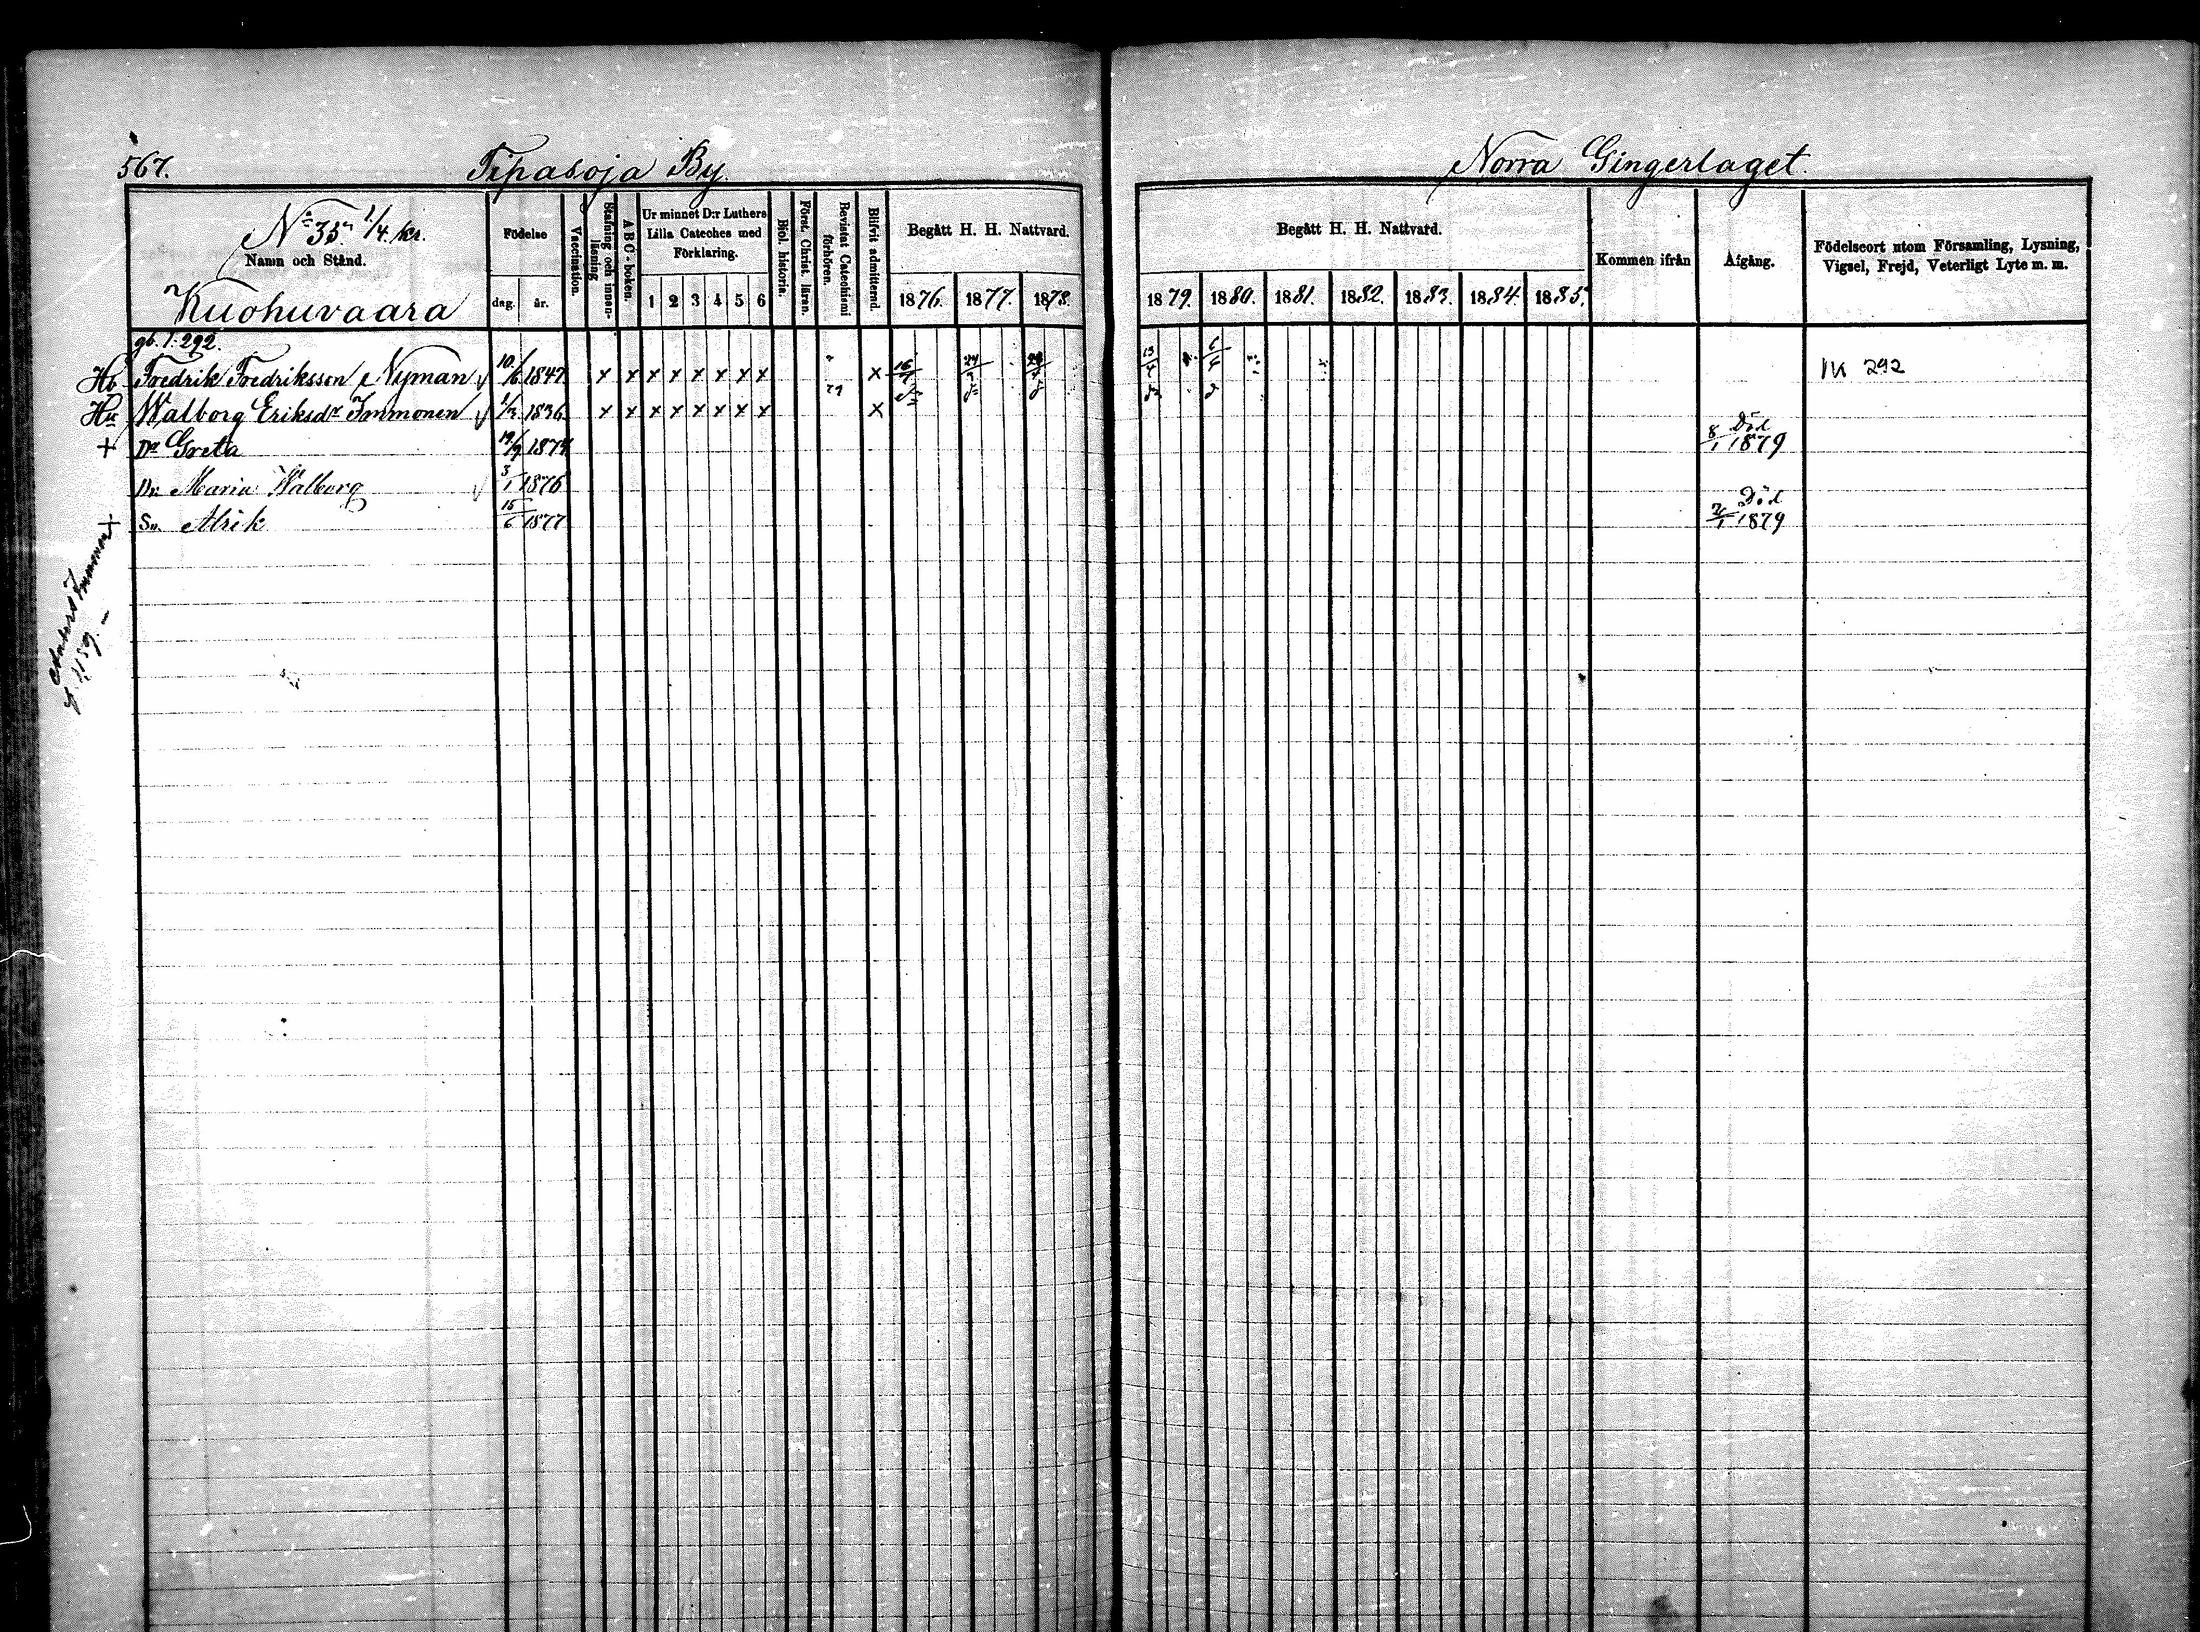 567.
Tipasoja By.
Norra Gingerlaget.
No 35. 1/4. kr.
Namn och Stånd.
Kuohuvaara
Födelse
dag. år.
Vaccination.
Stafning och innan-läsning
A B C-boken.
Ur minnet D:r Luthers
Lilla Cateches med
Förklaring.
1 2 3 4 5 6
Bibl. historia.
Först. Christ. läran.
Bevistat Catechismi förhören.
Blifvit admitterad.
Begått H. H. Nattvard.
1876. 1877. 1878.
Begått H. H. Nattvard.
1879. 1880. 1881. 1882. 1883. 1884. 1885.
Kommen ifrån
Afgång.
Födelseort utom Församling, Lysning,
Vigsel, Frejd, Veterligt Lyte m. m.
gb. 1. 292.
Hb Fredrik Fredriksson Nyman 10/6 1847 x x x x x x x x x IK 292
Hu Walborg Eriksdr Immonen 1/3 1836 x x x x x x x x x
+ Dr Greta 19/9 1874 Död 8/1 1879
Dr. Maria Walborg 3/1 1876
+ Sn. Alrik 15/6 1877 Död 2/1 1879
Anders Immonen
p. 1159.